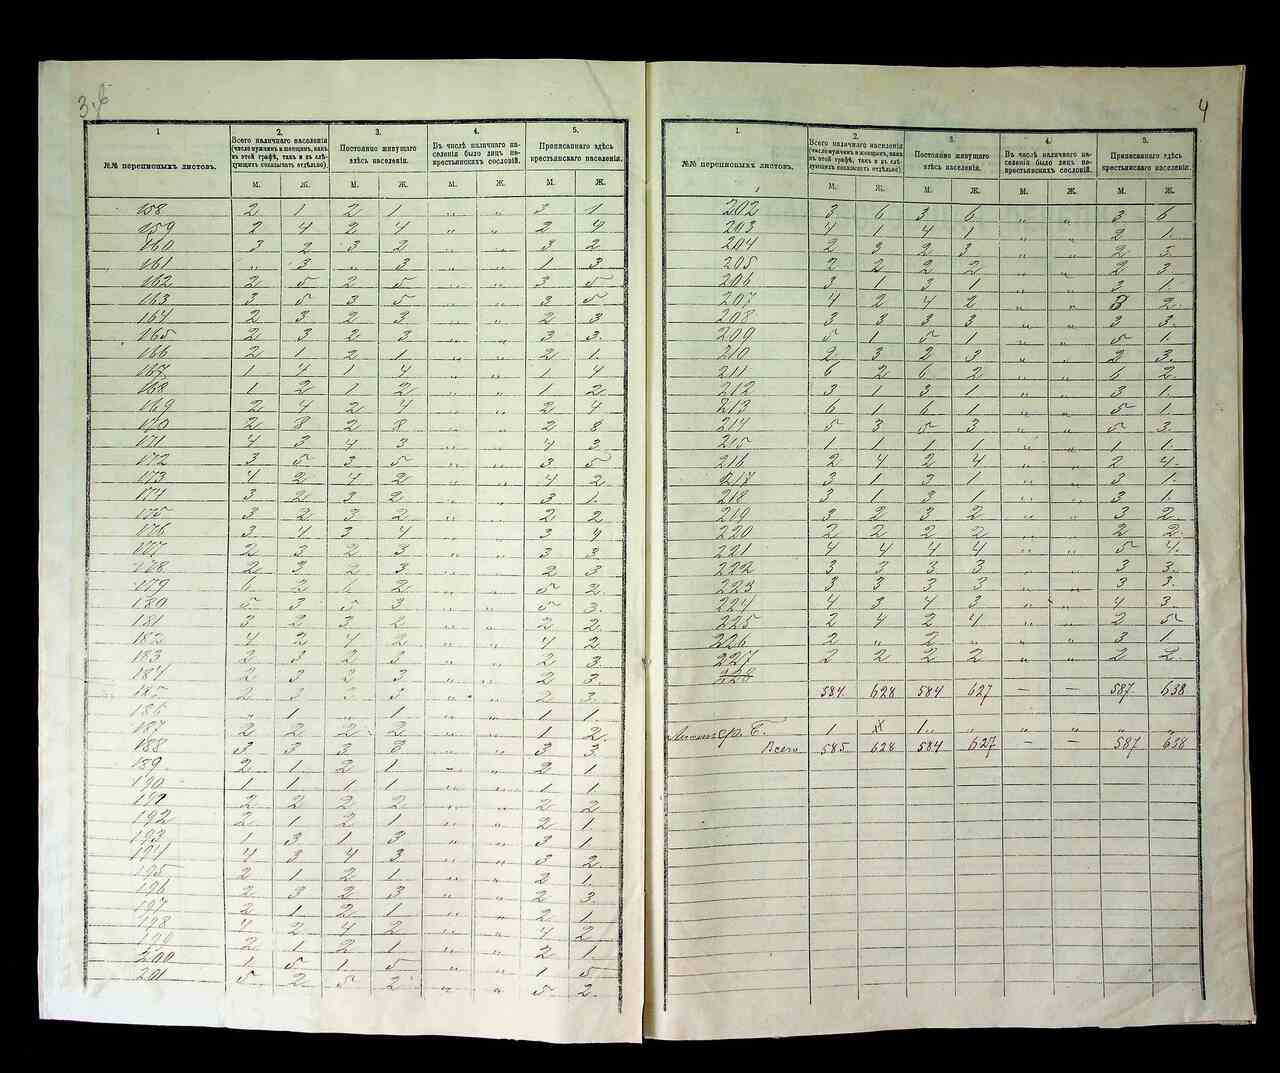 3. б
1
2.
3.
4.
5.
№№ переписныхъ листовъ.
Всего наличнаго населенія
(число мужчинъ и женщинъ, какъ
въ этой графѣ, такъ и въ слѣ-
дующихъ показывать отдѣльно).
Постоянно живущаго
здѣсь населенія.
Въ числѣ наличнаго на-
селенія было лицъ не-
крестьянскихъ сословій.
Приписаннаго здѣсь
крестьянскаго населенія.
М. Ж. М. Ж. М. Ж. М. Ж.
158 2 1 2 1 „ „ 3 1
159 2 4 2 4 „ „ 2 4
160 3 2 3 2 „ „ 3 2
161 „ 3 „ 3 „ „ 1 3
162 2 5 2 5 „ „ 3 5
163 3 5 3 5 „ „ 3 5
164 2 3 2 3 „ „ 2 3
165 2 3 2 3 „ „ 3 3.
166 2 1 2 1 „ „ 2 1.
167 1 4 1 4 „ „ 1 4
168 1 2 1 2 „ „ 1 2
169 2 4 2 4 „ „ 2 4
170 2 8 2 8 „ „ 2 8
171 4 3 4 3 „ „ 4 3
172 3 5 3 5 „ „ 3 5
173 4 2 4 2 „ „ 4 2
174 3 2 3 2 „ „ 3 1.
175 3 2 3 2 „ „ 2 2
176 3 4 3 4 „ „ 3 4
177 2 3 2 3 „ „ 3 3
178 2 3 2 3 „ „ 2 3
179 6 2 2 „ „ 5 2
180 5 3 5 3 „ „ 5 3.
181 3 2 3 2 „ „ 2 2.
182 4 2 4 2 „ „ 4 2
183 2 3 2 3 „ „ 2 3.
184 2 3 3 „ „ 2 3.
185 2 3 3 „ „ 2 3.
186 „ 1 „ 1 „ „ 1 1
187 2 2 2 2 „ „ 1 2
188 3 3 3 3 „ „ 3 3
189 2 1 2 1 „ „ 2 1
190 1 1 1 1 „ „ 1 1
191 2 2 2 2 „ „ 2 2
192 2 1 2 1 „ „ 2 1.
193 1 3 1 3 „ „ 3 1
194 4 3 4 3 „ „ 3 2
195 2 1 2 1 „ „ 2 1.
196 2 3 2 3 „ „ 2 3
197 2 1 2 1 „ „ 2 1
198 4 2 4 2 „ „ 4 2
199 2 1 2 1 „ „ 2 1
200 1 5 1 5 „ „ 1 5
201 5 2 5 2 „ „ 5 2
4
1.
2.
3.
4.
5.
№№ переписныхъ листовъ.
Всего наличнаго населенія
(число мужчинъ и женщинъ, какъ
въ этой графѣ, такъ и въ слѣ-
дующихъ показывать отдѣльно).
Постоянно живущаго
здѣсь населенія.
Въ числѣ наличнаго на-
селенія было лицъ не-
крестьянскихъ сословій.
Приписаннаго здѣсь
крестьянскаго населенія.
М. Ж. М. Ж. М. Ж. М. Ж.
202 3 6 3 6 „ „ 3 6
203 4 1 4 1 „ „ 2 1.
204 2 3 2 3 „ „ 2 3.
205 2 2 2 2 „ „ 2 3.
206 3 1 3 1 „ „ 3 1.
207 4 2 4 2 „ „ 3 2
208 3 3 3 3 „ „ 3 3.
209 5 1 5 1 „ „ 5 1.
210 2 3 2 3 „ „ 2 3.
211 6 2 6 2 „ „ 6 2.
212 3 1 3 1 „ „ 3 1.
213 6 1 6 1 „ „ 5 1.
214 5 3 5 3 „ „ 5 3.
215 1 1 1 1 „ „ 1 1.
216 2 4 2 4 „ „ 2 4.
217 3 1 3 1 „ „ 3 1.
218 3 1 3 1 „ „ 3 1.
219 3 2 3 2 „ „ 3 2
220 2 2 2 2 „ „ 2 2.
221 4 4 4 4 „ „ 5 4.
222 3 3 3 3 „ „ 3 3.
223 3 3 3 3 „ „ 3 3.
224 4 3 4 3 „ „ 4 3.
225 2 4 2 4 „ „ 2 5
226 2 „ 2 „ „ „ 3 1
227 2 2 2 2 „ „ 2 2.
228
584 628 584 627 — — 587 638
ф. Б. 1 „ „ „ „
Всего 585 628 584 627 — — 587 638